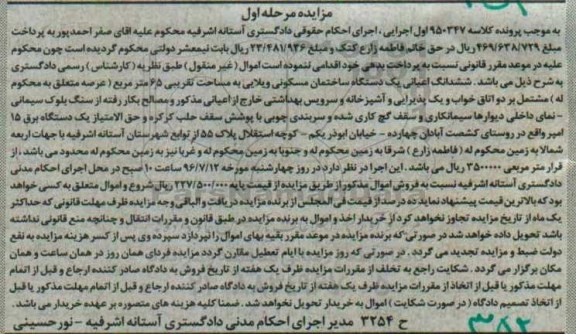 مزایده مرحله اول
به موجب پرونده کلاسه ۹۵۰۳۴۷ اول اجرایی ، اجرای احکام حقوقی دادگستری آستانه اشرفیه محکوم علیه اقای صفر احمدپور به پرداخت
مبلغ ۴۶۹/۶۳۸/۷۲۹ ریال در حق خانم فاطمه زارع کتک و مبلغ ۲۳/۴۸۱/۹۳۶ ریال بابت نیمعشر دولتی محکوم گردیده است چون محکوم
علیه در موعد مقرر قانونی نسبت به پرداخت بدهی خود اقدامی ننموده است اموال ( غیر منقول ) طبق نظریه ( کارشناس ) رسمی دادگستری
به شرح ذیل می باشد . ششدانگ اعیانی یک دستگاه ساختمان مسکونی ویلایی به مساحت تقریبی ۶۵ متر مربع ( عرصه متعلق به محکوم
له ) مشتمل بر دو اتاق خواب و یک پذیرایی و آشپزخانه و سرویس بهداشتی خارج از اعیانی مذکور و مصالح بکار رفته از سنگ بلوک سیمانی
- نمای داخلی دیوارها سیمانکاری و سقف گچ کاری شده و سربندی چوبی با پوشش سقف حلب کرکره و حق الامتیاز یک دستگاه برق ۱۵
امپر واقع در روستای کشصت آبادان چهارده - خیابان ابوذر یکم - کوچه استقلال پلاک ۵۵ از توابع شهرستان آستانه اشرفیه با جهات اربعه
شمالا به زمین محکوم له ( فاطمه زارع ) شرقا به زمین محکوم له و جنوبا به زمین محکوم له و غربا نیز به زمین محکوم له محدود می باشد . از
قرار متر مربعی ۳۵۰۰۰۰۰ ریال می باشد . این اجرا در نظر دارد در روز چهارشنبه مورخه ۹۶/۷/۱۲ ساعت ۱۰ صبح در محل اجرای احکام مدنی
دادگستری آستانه اشرفیه نسبت به فروش اموال مذکور از طریق مزایده از قیمت پایه ۲۲۷/۵۰۰/۰۰۰ ریال شروع و اموال متعلق به کسی خواهد
بود که بالاترین قیمت پیشنهاد نماید ده در صد از قیمت فی المجلس از برنده مزایده دریافت و الباقی وجه مزایده ظرف مهلت قانونی که حداکثر
یک ماه از تاریخ مزایده تجاوز نخواهد کرد از خریدار اخذ و اموال به برنده مزایده در طبق قانون و مقررات انتقال و چنانچه منع قانونی نداشته
باشد تحویل داده خواهد شد در صورتی که برنده مزایده در موعد مقرر بقیه بهای اموال را نپردازد سپرده وی پس از کسر هزینه مزایده به نفع
دولت ضبط و مزایده تجدید می گردد . در صورتی که روز مزایده با ایام تعطیل مقارن گردد مزایده فردای همان روز در همان ساعت و همان
مکان برگزار می گردد . شکایت راجع به تخلف از مقررات مزایده ظرف یک هفته از تاریخ فروش به دادگاه صادر کننده ارجاع و قبل از اتمام
مهلت مذکور یا قبل از اتخاذ از مقررات مزایده ظرف یک هفته از تاریخ فروش به دادگاه صادر کننده ارجاع و قبل از اتمام مهلت مذکور یا قبل
از اتخاذ تصمیم دادگاه ( در صورت شکایت ) اموال به خریدار تحویل نخواهد شد . ضمنا کلیه هزینه های متصوره بر عهده خریدار می باشد .
ح ۳۲۵۴ مدیر اجرای احکام مدنی دادگستری آستانه اشرفیه - نور حسینی
۳۸۲